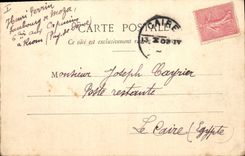 I
Henri Perrin
faubourg
à Riom (Puy de Dôme)
CARTE POSTALE
Ce côté est exclusivement
LE CAIRE
Monsieur Joseph Cayrier
Poste restante
Le Caire (Egypte)